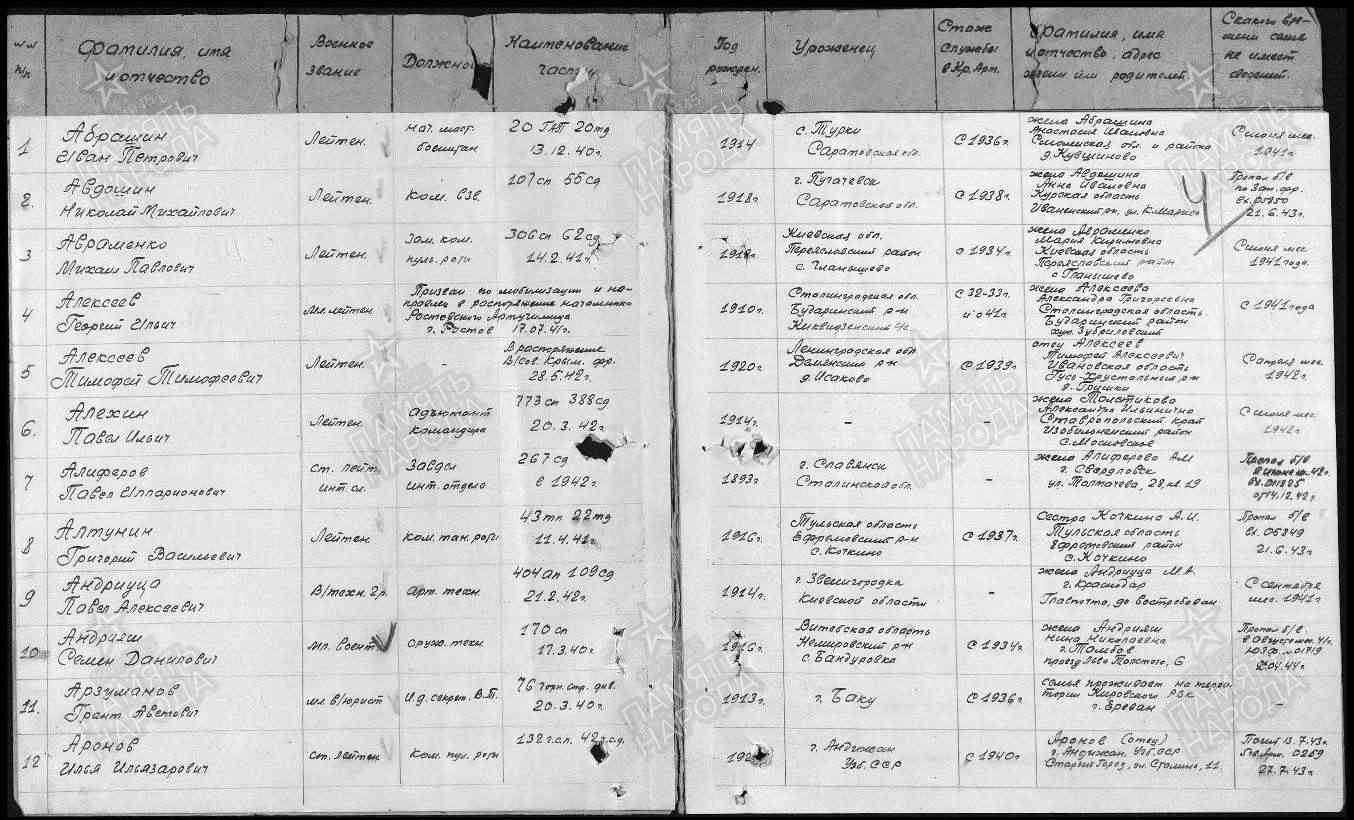 №№ п/п
Фамилия, имя и отчество
Военное звание
Должнос
Наименование части
Год рожден.
Уроженец
Стаж службы в Кр. Арм.
Фамилия, имя и отчество, адрес жены или родителей.
Скакого вре-мени семья не имеет сведений.
1
Абрашин
Иван Петрович
Лейтен.
нач. маст.
боепитан
20 ГАП 20тд
13.12.40г.
1914
с. Турки
Саратовская обл.
С 1936г.
жена Абрашина
Анастасия Ивановна
Смоленская обл. и района
д. Кувшиново
С июня мес.
1941г.
2.
Авдошин
Николай Михайлович
Лейтен.
Ком. взв.
107сп 55сд
1918г.
г. Пугачевск
Саратовской обл.
С 1938г.
жена Авдошина
Анна Ивановна
Курская область
ул. К. Маркса
Пропал б/в
по Зап. фр.
вх. 05950
21.6.43г.
3
Авраменко
Михаил Павлович
Лейтен.
Зам. ком.
пуль. роты
306сп 62сд
14.2.41г.
Киевская обл.
Переяславский район
с. Гланышево
с 1934г.
жена Авраменко
Мария Кирилловна
Киевская область
Переяславский район
с Гланышево
С июня мес
1941 года.
4
Алексеев
Георгий Ильич
мл. лейтен.
Призван по мобилизации и на-
правлен в распоряжение начальника
Ростовского Артучилища
г. Ростов 17.07.41г.
1910г.
Сталинградская обл.
Бударинский р-н
С 32-33г.
и с 41г.
жена Алексеева
Александра Григорьевна
Сталинградская область
Бударинский район
хут. Зубриловский
С 1941года
5
Алексеев
Тимофей Тимофеевич
Лейтен.
-
В распоряжение
В/Сов. Крым. фр.
28.5.42г.
1920г.
Ленинградская обл
Демянский р-н
д. Исаково
С 1939г.
отец Алексеев
Тимофей Алексеевич
Ивановская область
Гусь-Хрустальный р-н
д. Грушки
С апреля мес.
1942г.
6.
Алехин
Павел Ильич
Лейтен.
Адъютант
Командира
773сп 388сд
20.3.42г.
1914г.
-
-
жена Толстикова
Александра Ильинична
Ставропольский край
Изобильненский район
с. Московское
С июня мес
1942г
7
Алиферов
Павел Илларионович
ст. лейт.
инт. сл.
Завдел
инт. отдела
267сд
с 1942г.
1893г.
г. Славянск
Сталинской обл.
-
жена Алиферова А М
г. Свердловск
ул. Толмачева, 28, кв. 19
Пропал б/в
в июне м. 42г.
от 14.12.42г
8
Алтунин
Григорий Васильевич
Лейтен
Ком. тан. роты
43тп 22тд
11.4.42г.
1916г.
Тульская область
Ефремовский р-н
с. Кочкино
С 1937г.
Сестра Кочкина А.И.
Тульская область
район
с. Кочкино
Пропал б/в
вх. 06349
21.6.43г
9
Андриуца
Павел Алексеевич
В/техн. 2р.
арт. техн.
404ап 109сд
21.2.42г.
1914г.
г. Звенигородка
Киевской области
-
жена Андриуца М.А.
г. Краснодар
Главпочта, до востребован
С сентября
мес. 1941г
10
Андрияш
Семен Данилович
мл. воент.
Оруж. техн.
170сп
17.3.40г.
1916г.
Витебская область
Немировский р-н
с. Бандуровка
С 1934г.
жена Андрияш
Нина Николаевна
г. Тамбов
проезд Льва Толстого, 6
Пропал б/в
в августе м. 41г
11.
Арзуманов
Грант Аветович
мл. в/юрист
И.д. секрет. В.П.
76 горн. стр. див.
20.3.40г.
1913г.
г. Баку
С 1936г
Семья проживает на терри-
тории Кировского РВК
г. Ереван
-
12
Аронов
Илья Ильязарович
ст. лейтен
Ком. пул. роты
132г.сп. 42г.сд.
г. Андижан
Узб. ССР
С 1940г.
Аронов (отец)
г. Андижан Узб.ССР
Старый Город, ул. Сталина, 11.
Погиб 13.7.43г.
27.7.43г
ПАМЯТЬ НАРОДА